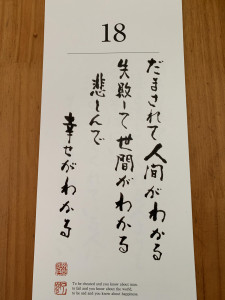 18
だまされて人間がわかる
失敗して世間がわかる
悲しんで
幸せがわかる
To be cheated and you know about man
to fail and you know about the world
to be sad and you know about happiness